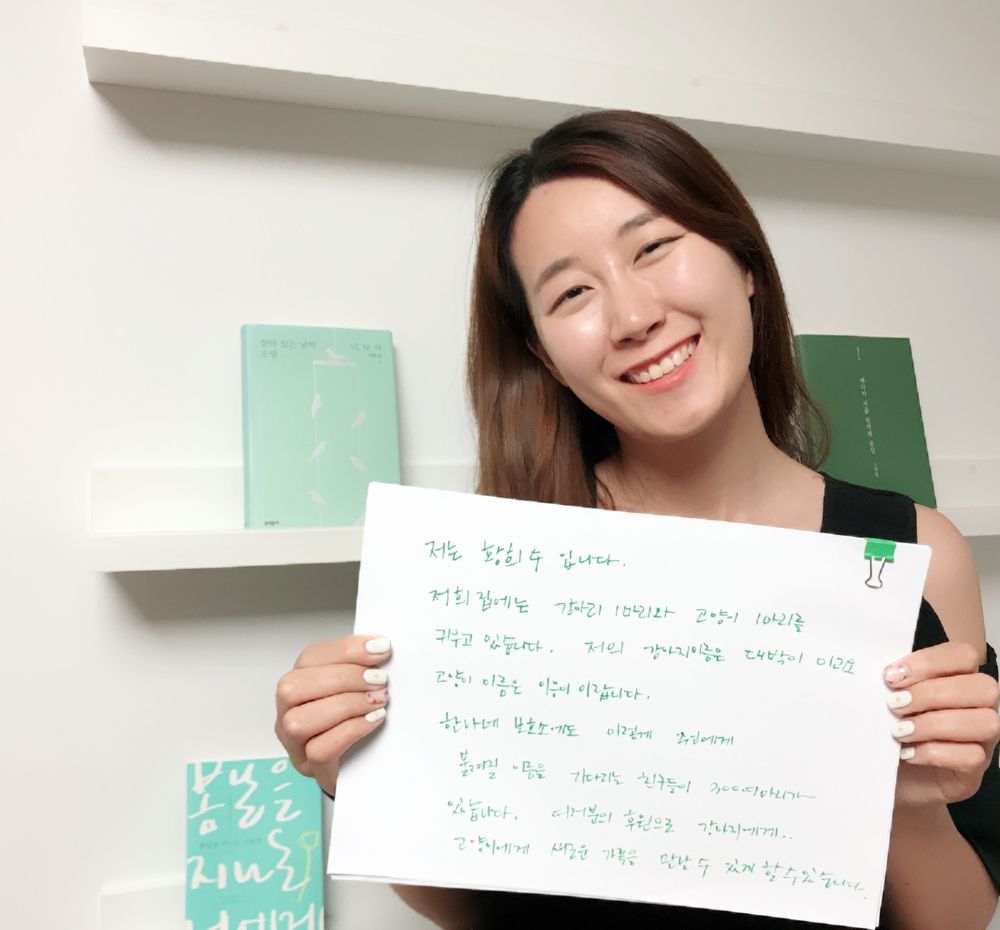 살아 있는 날의
소망
박완서
문학동네
봄날을
지나는
너에게
저는 황희수 입니다.
저희 집에는 강아리 1마리와 고양이 1마리를
키우고 있습니다. 저의 강아지이름은 대박이 이고요
고양이 이름은 이랍니다.
한나네 보호소에도 이렇게 주인에게
불려질 이름을 기다리는 친구들이 300여마리가
있습니다. 여러분의 후원으로 강아지에게..
고양이에게 새로운 가족을 만날 수 있게 할 수 있습니다.